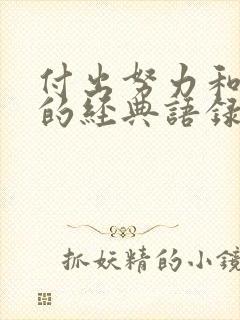 付出努力和
的經典語錄
抓妖精的小鏡